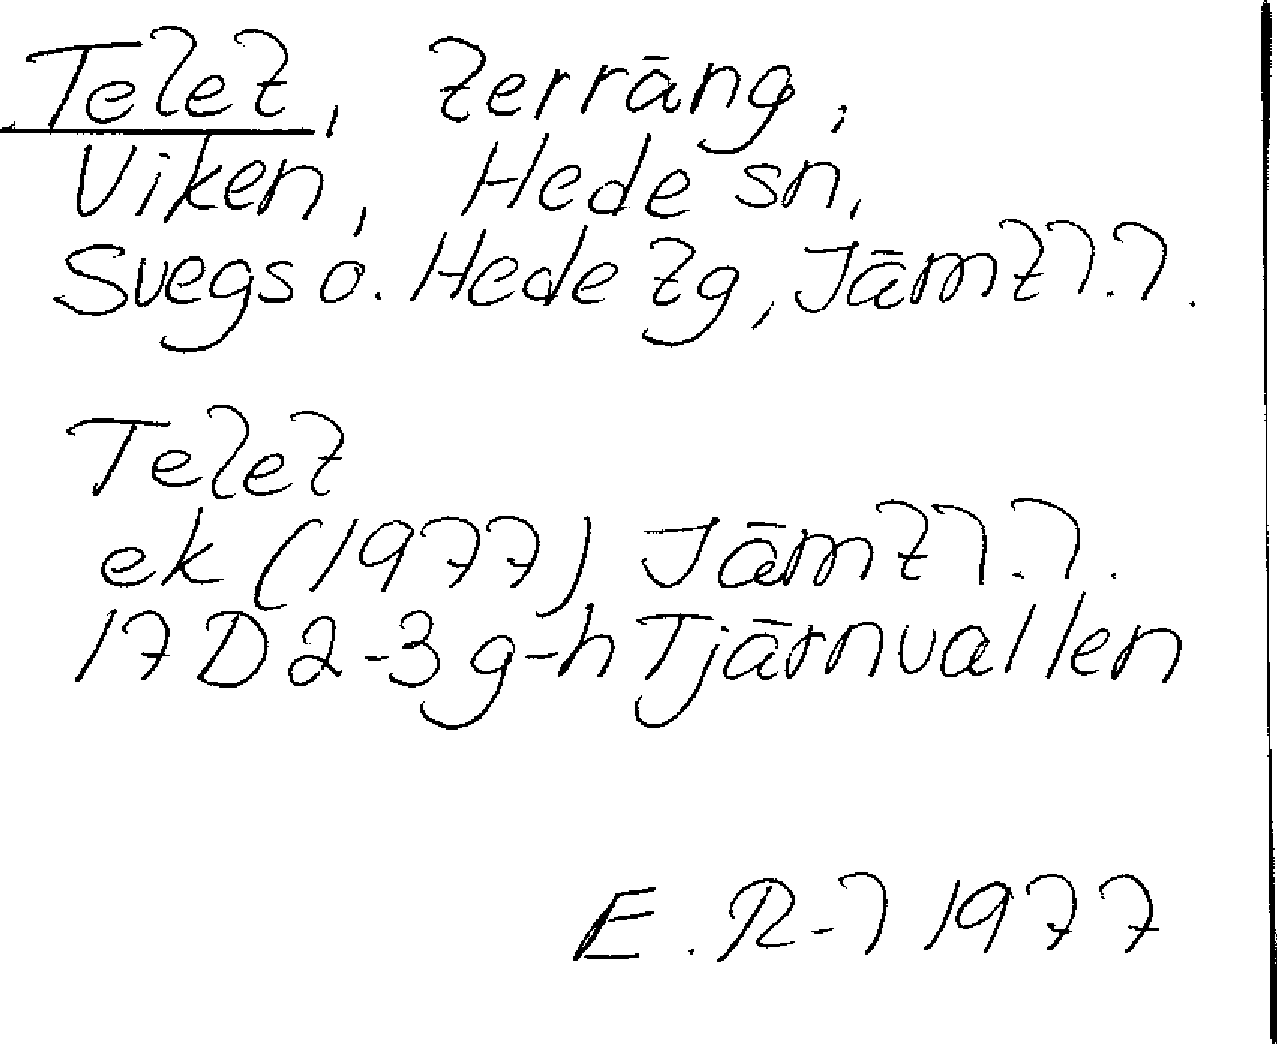 Telet, terräng,
Viken, Hede sn,
Svegs o. Hede tg, Jämtl.l.
Telet
ek (1977) Jämtl.l.
17D 2-3 g-h Tjärnvallen
E. R-l 1977